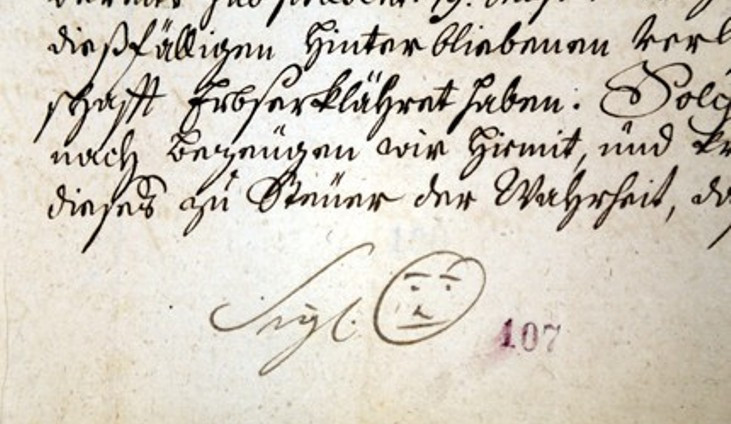 dießfälligen Hinterbliebenen
schafft Erbserklähret haben. Solch
nach bezeugen wir hiemit, und kr
dieses zu Steüer der Wahrheit, da
Sigl.
107